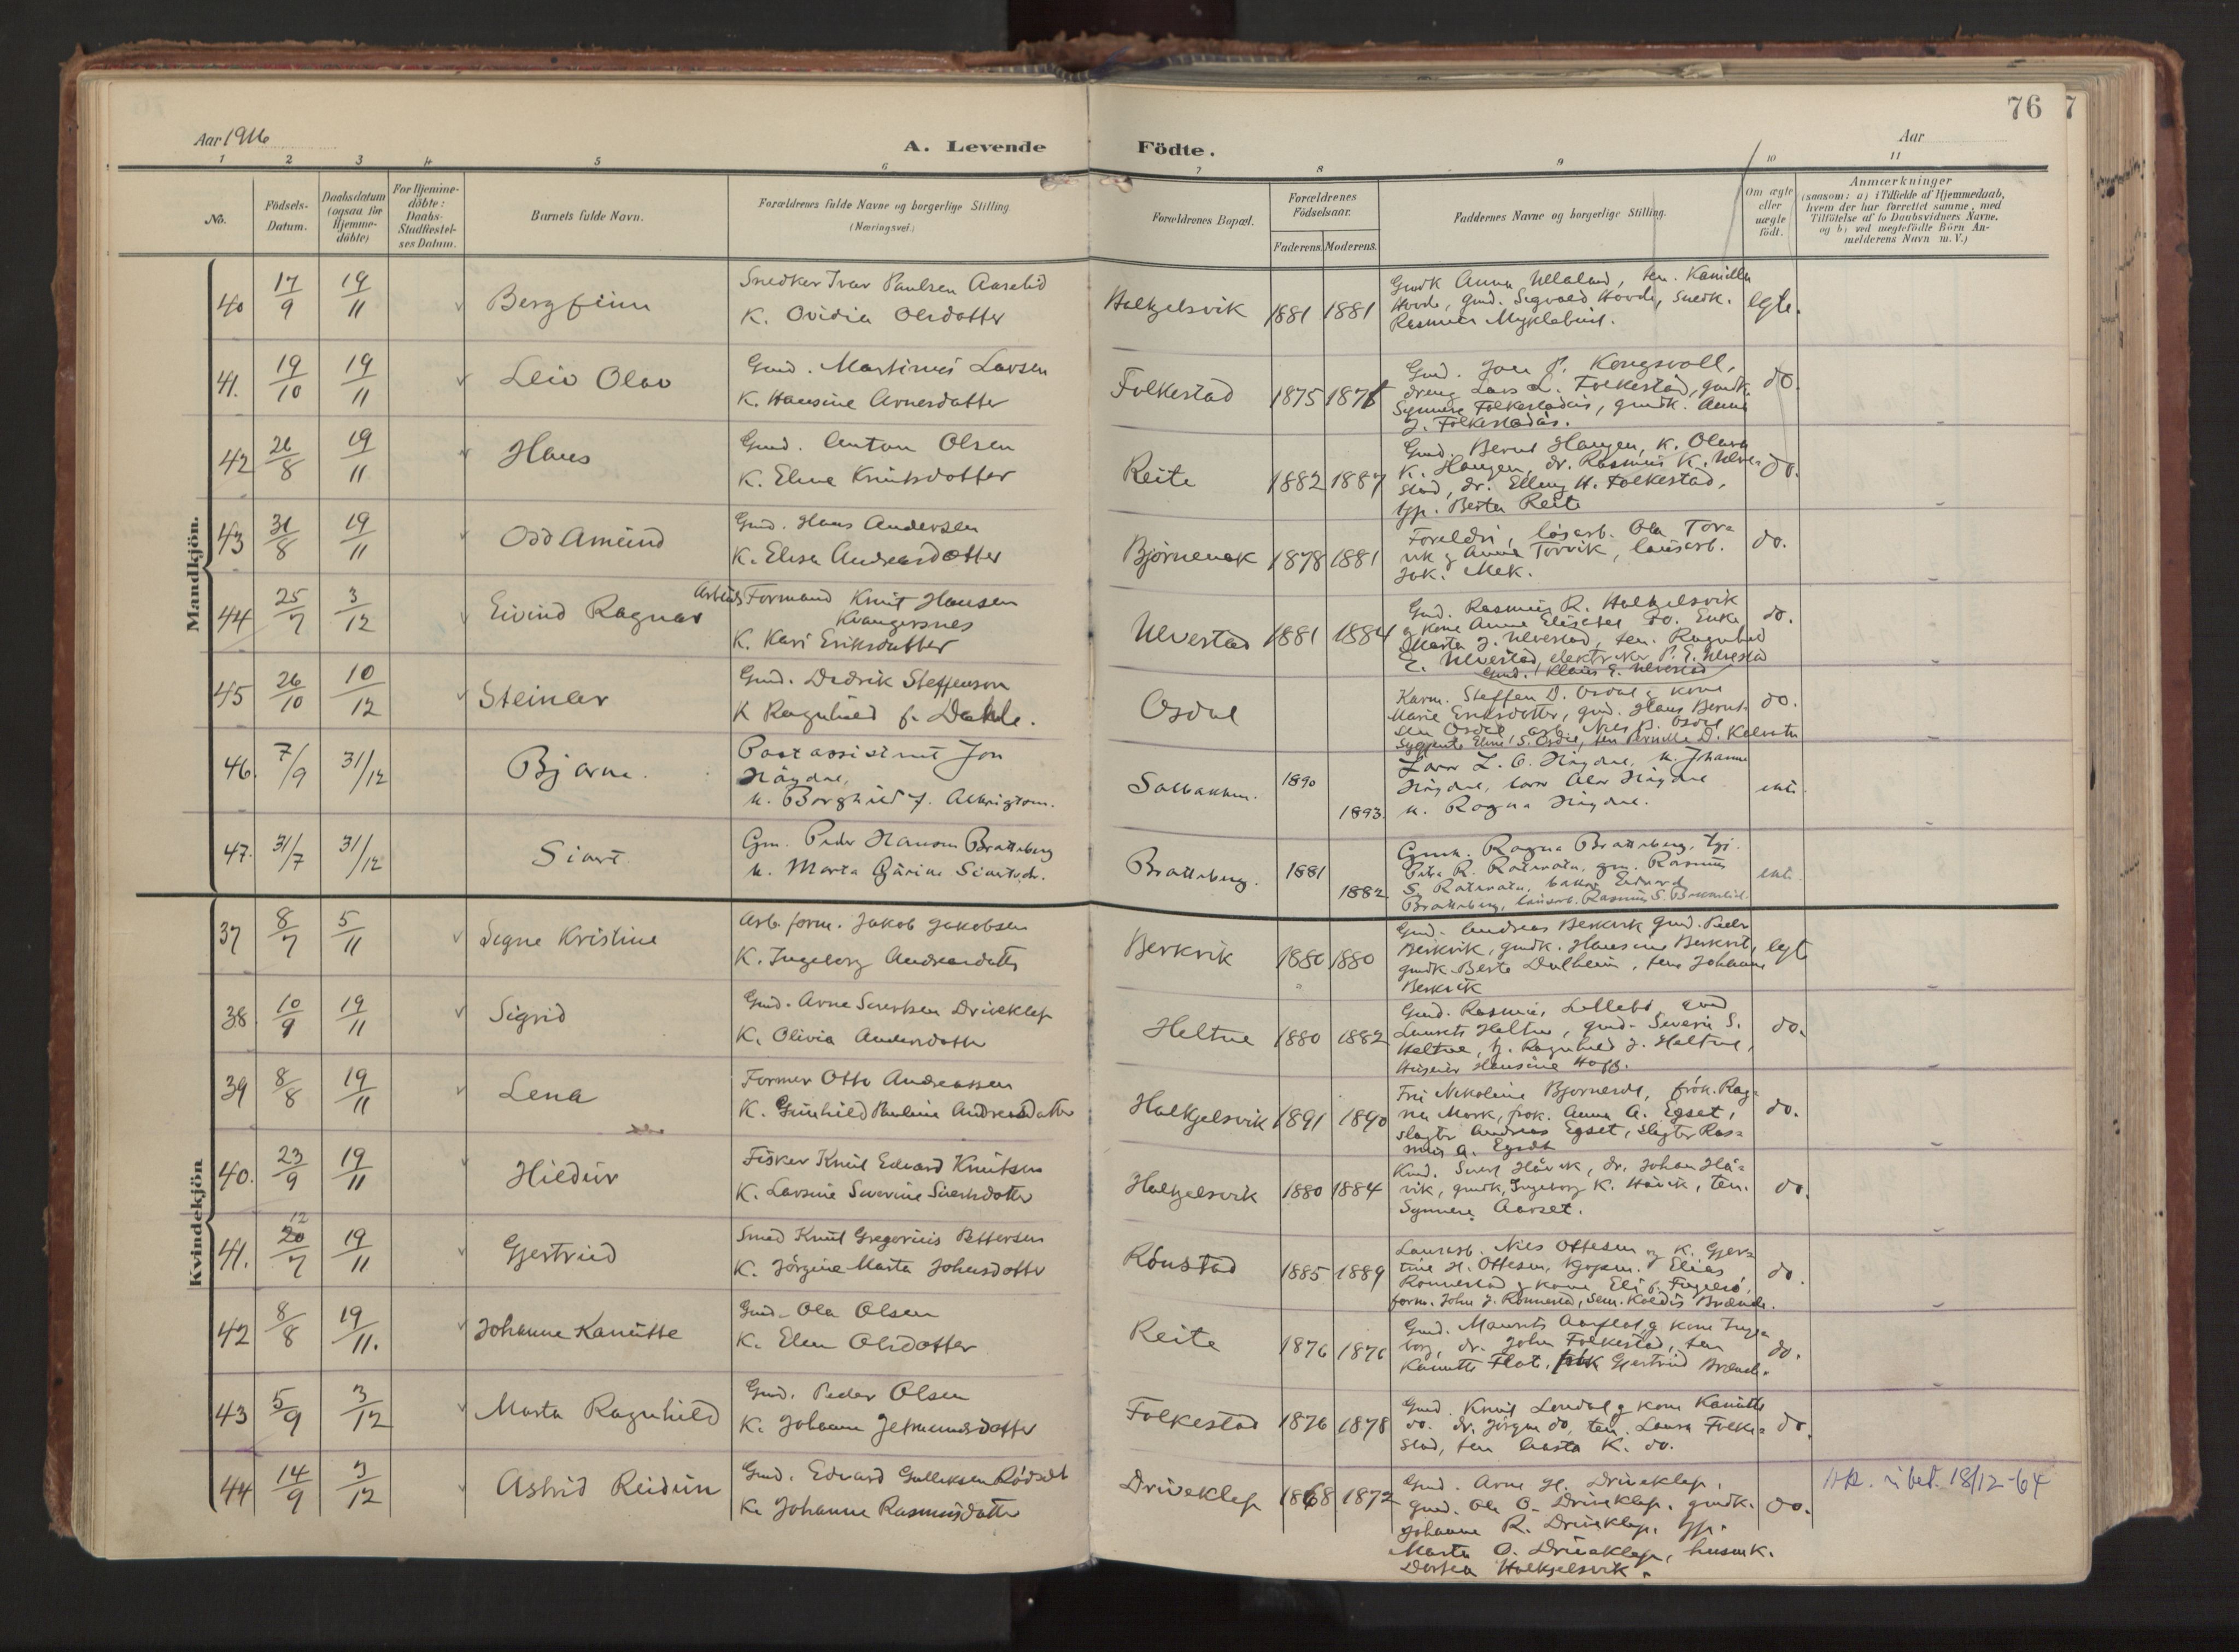 76
7
Aar 1916
A. Levende
Födte.
Aar
1 2 3 4 5 6 7 8 9 10 11
No.
Födsels-
Datum.
Daabsdatum
(ogsaa for
Hjemme-
döbte)
For Hjemme-
döbte:
Daabs-
Stadfæstel-
ses Datum.
Barnets fulde Navn.
Forældrenes fulde Navne og borgerlige Stilling
(Næringsvei.)
Forældrenes Bopæl.
Forældrenes
Födselsaar.
Faderens. Moderens.
Faddernes Navne og borgerlige Stilling.
Om ægte
eller
uægte
födt.
Anmærkninger
(saasom: a) i Tilfælde af Hjemmedaab,
hvem der har forrettet samme, med
Tilföielse af to Daabsvidners Navne,
og b) ved uægtefödte Börn An-
melderens Navn m. V.)
Mandkjön.
40 17/9 19/11 Bergfinn
Snedker Ivar Paulsen Aarelid
K. Ovidia Olsdotter
Halkjelsvik 1881 1881
Gmdk Anna Ulaland, ten. Kamilla
Hovde, gmd. Sigvald Hovde, snedk.
Rasmus Myklebust.
egte.
41. 19/10 19/11 Leiv Olav
Gmd. Martinus Larsen
K. Hansine Arnesdatter
Folkestad 1875 1871
Gmd. Jon P. Kongsvoll,
dreng Lars L. Folkestad, gmdk.
Synnøve Folkestadås, gmdk. Anne
J. Folkestadås.
do.
42 26/8 19/11 Hans
Gmd. Anton Olsen
K. Eline Knutsdotter
Reite 1882 1887
Gmd. Bernt Haugen, K. Olava
K. Haugen, dr. Rasmus K. Ulve-
stad, dr. Elling H. Folkestad,
tjp. Berta Reite
do.
43 31/8 19/11 Odd Amund
Gmd. Hans Andersen
K. Elisa Andreasdotter
Bjørnenak 1878 1881
Foreldri, lösarb. Ola Tor-
vik g Anna Torvik, lausarb.
Jak. Mek.
do.
44 25/7 3/12 Eivind Ragnar
Arbeids Formand Knut Hansen
Kvangersnes
K. Kari Eriksdatter
Ulvestad 1881 1884
Gmd. Rasmus R. Halkjelsvik
g kone Anne Elisabet do. Enke
Marta J. Ulvestad, ten. Ragnhild
E. Ulvestad, elektriker P. E. Ulvestad
Gmd. Klaus E. Ulvestad
do.
45 26/10 10/12 Steinar
Gmd. Didrik Steffenson
K Ragnhild f. Dahle.
Osdal
Karm. Steffen D. Osdal g kone
Marie Eriksdotter, gmd. Hans Bernt-
sen Osdal, arb. Nils B. Osdal
do.
46. 7/9 31/12 Bjarne.
Postassistent Jon
Höydal,
k. Borghild J. Albrigtsen.
Solbakken. 1890
1893.
Lærar L. A. Höydal, k. Johanne
Höydal, lærar Olav Höydal
k. Ragna Höydal.
ekte.
47. 31/7 31/12 Sivert
Gm. Peder Hanson Bratteberg
k. Marta Kärine Sivertsdr.
Bratteberg. 1881
1882
Gmk. Ragna Bratteberg, tjg.
Petra R. Rotevatn, gm. Rasmus
S. Rotevatn, bakar Edvard
Bratteberg, lausarb. Rasmus S.
ekte.
Kvindekjön
37 8/7 5/11 Signe Kristine
Arb. form. Jakob Jakobsen
K. Ingeborg Andreasdatter
Berkvik 1880 1880
Gmd. Andreas Berkvik Gmd. Peder
Berkvik, gmdk. Hansine Berkvik,
gmdk. Berte Dalheim, tena Johanne
Berkvik
egte
38. 10/9 19/11 Sigrid
Gmd. Arne Sivertsen Driveklep
K. Olivia Andersdatter
Heltne 1880 1882
Gmd. Rasmus Lillebö, Gmd
Laurits Heltne, gmd. Severin S.
Heltne, tj. Ragnhild J. Heltne,
Hansine Hoff.
do.
39 8/8 19/11 Lena
Former Otto Andreassen
K. Gunhild Pauline Andreasdatter
Halkjelsvik 1891 1890
Fru Nikoline Bjørnerdt, frök. Rag-
na Mork, frok. Anna A. Egset,
slagter Andreas Egset, slagter Ras-
mus A. Egset
do.
40. 23/9 19/11 Hildur
Fisker Knut Edvard Knutsen
K. Larsine Severine Sivertsdatter
Halkjelsvik 1880 1884
Gmd. Sivert Håvik, dr. Johan Hå-
vik, gmdk. Ingeborg K. Håvik, ten.
Synnøve Aarset.
do.
41. 12 20/7 19/11 Gjertrud
Smed Knut Gregorius Pettersen
K. Jörgine Marta Johnsdotter
Rönstad 1885 1889
Lausarb. Nils Ottesen og K. Gjer-
tine H. Ottesen, kjøpm. Elias
Rönnestad g kone Eli f. Fugleså,
form. John J. Rönnestad, sem. Koldis Brænde.
do.
42 8/8 19/11. Johanne Kanutte
Gmd. Ola Olsen
K. Elen Olsdotter
Reite 1876 1876
Gmd. Maurits Aarflot g kone Inge-
borg, dr. John Folkestad, ten
Kanutte Flot, Gjertrud Brænde.
do.
43 5/9 3/12 Marta Ragnhild
Gmd. Peder Olsen
K. Johanne Jetmundsdotter
Folkestad 1876 1878
Gmd. Knut Løndal g kone Kanutte
do. dr. Jörgen do, ten. Laura Folke-
stad, ten Aasta K. do.
do.
44 14/9 3/12 Astrid Reidun
Gmd. Edvard Gulleksen Rödset
K. Johanne Rasmusdatter
Driveklep 1868 1872
Gmd. Arne H. Driveklep,
gmd. Ole O. Driveklep, gmdk.
Johanne R. Driveklep, tjp.
Marta O. Driveklep, husmk.
Dortea Halkjelsvik.
do.
18/12-64